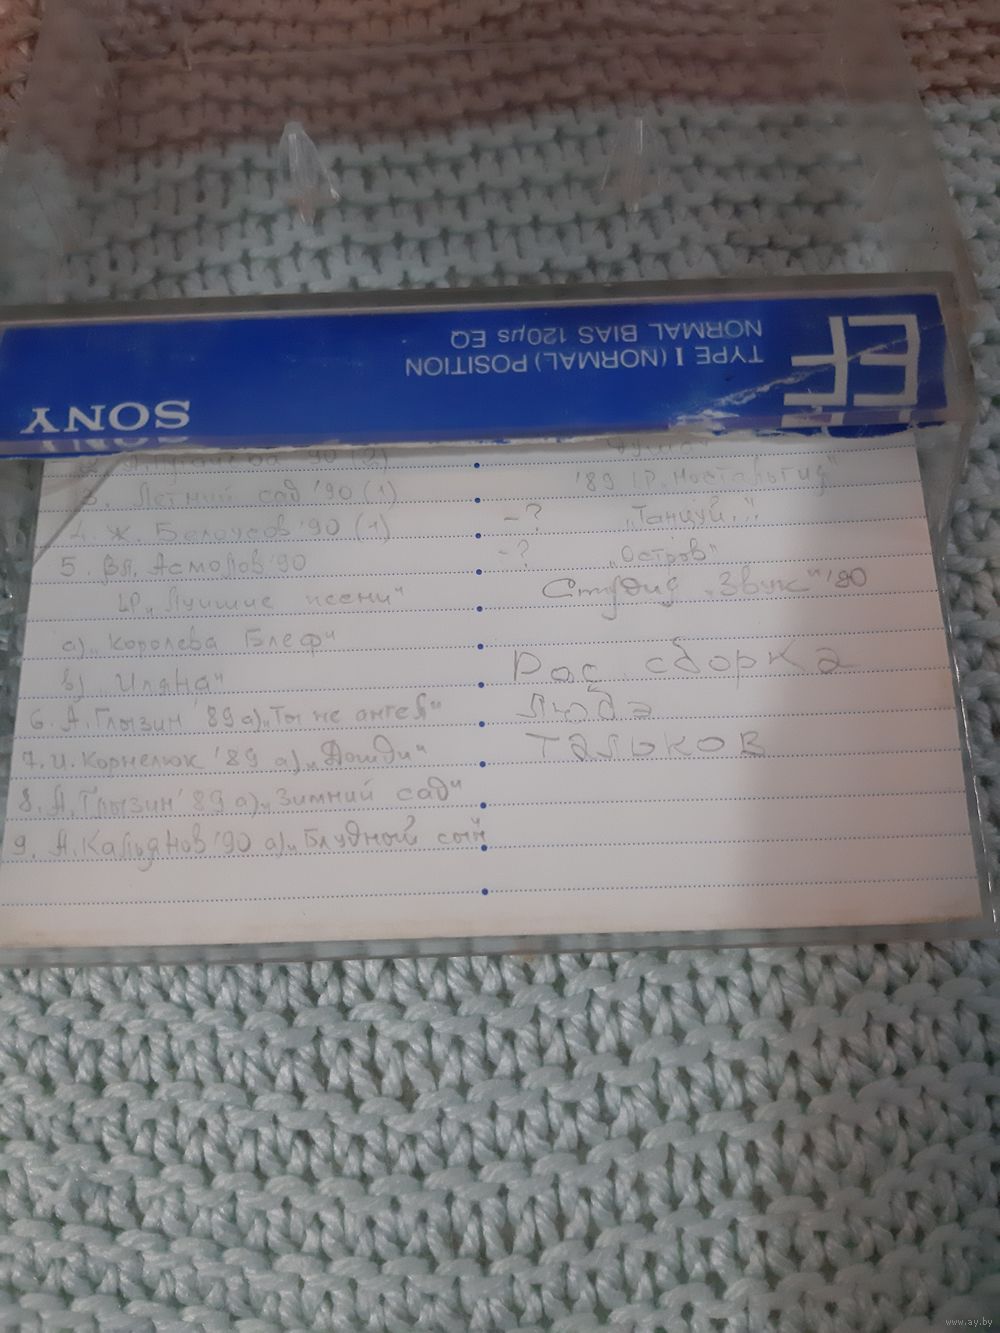 EF
TYPE I (NORMAL) POSITION
NORMAL BIAS 120µs EQ
SONY
'90 (2)
3. Летний сад '90 (1)
4. Ж. Белоусов '90 (1)
5. Вл. Асмолов '90
LP „Лучшие песни"
а) „Королева Блеф"
в) „Иляна"
6. А. Глызин '89 а) „Ты не ангел"
7. И. Корнелюк '89 а) „Дожди"
8. А. Глызин '89 а) „Зимний сад"
9. А. Кальянов '90 а) „Блудный сын
'89 LP „Ностальгия"
-? „Танцуй..."
-? „Остров"
Студия „Звук" '90
Рос сборка
Люба
Тальков
www.ay.by